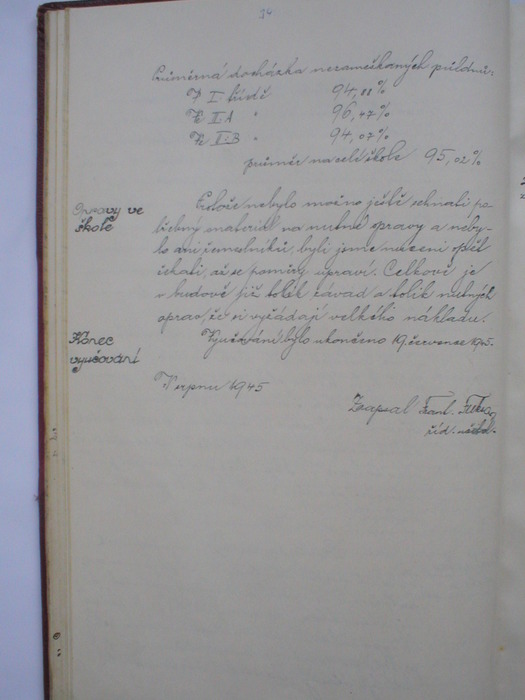 34
Průměrná docházka nezameškaných půldnů:
V I třídě 94,88%
Ve II.A " 96,47%
Ve II.B " 94,07%
průměr na celé škole 95,02%
Opravy ve škole
Protože nebylo možno ještě sehnati po-
třebný materiál na nutné opravy a neby-
lo ani řemeslníků, byli jsme nuceni opět
čekati, až se poměry upraví. Celkově je
v budově již tolik závad a tolik nutných
oprav, že si vyžádají velkého nákladu.
Konec vyučování
Vyučování bylo ukončeno 19. července 1945.
V srpnu 1945
Zapsal Frant.
říd. učitel.